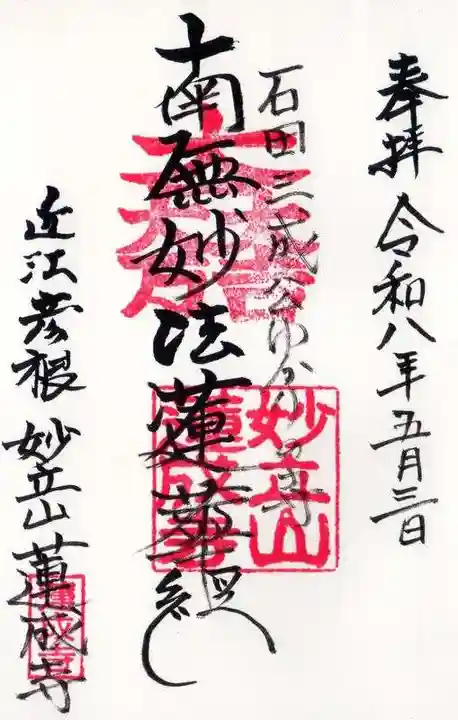 奉拝 令和八年五月三日
石田三成公ゆかり之寺
南無妙法蓮華経
妙立山
蓮成寺
近江彦根 妙立山 蓮成寺
蓮成寺